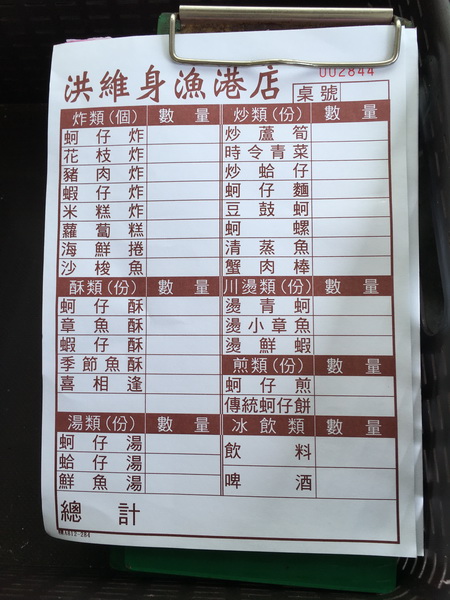 002844
洪維身漁港店 桌號
炸類(個) 數量 炒類(份) 數量
蚵仔炸 炒蘆筍
花枝炸 時令青菜
豬肉炸 炒蛤仔
蝦仔炸 蚵仔麵
米糕炸 豆鼓蚵
蘿蔔糕 蚵螺
海鮮捲 清蒸魚
沙梭魚 蟹肉棒
酥類(份) 數量 川燙類(份) 數量
蚵仔酥 燙青蚵
章魚酥 燙小章魚
蝦仔酥 燙鮮蝦
季節魚酥 煎類(份) 數量
喜相逢 蚵仔煎
傳統蚵仔餅
湯類(份) 數量 冰飲類 數量
蚵仔湯 飲料
蛤仔湯
鮮魚湯 啤酒
總計